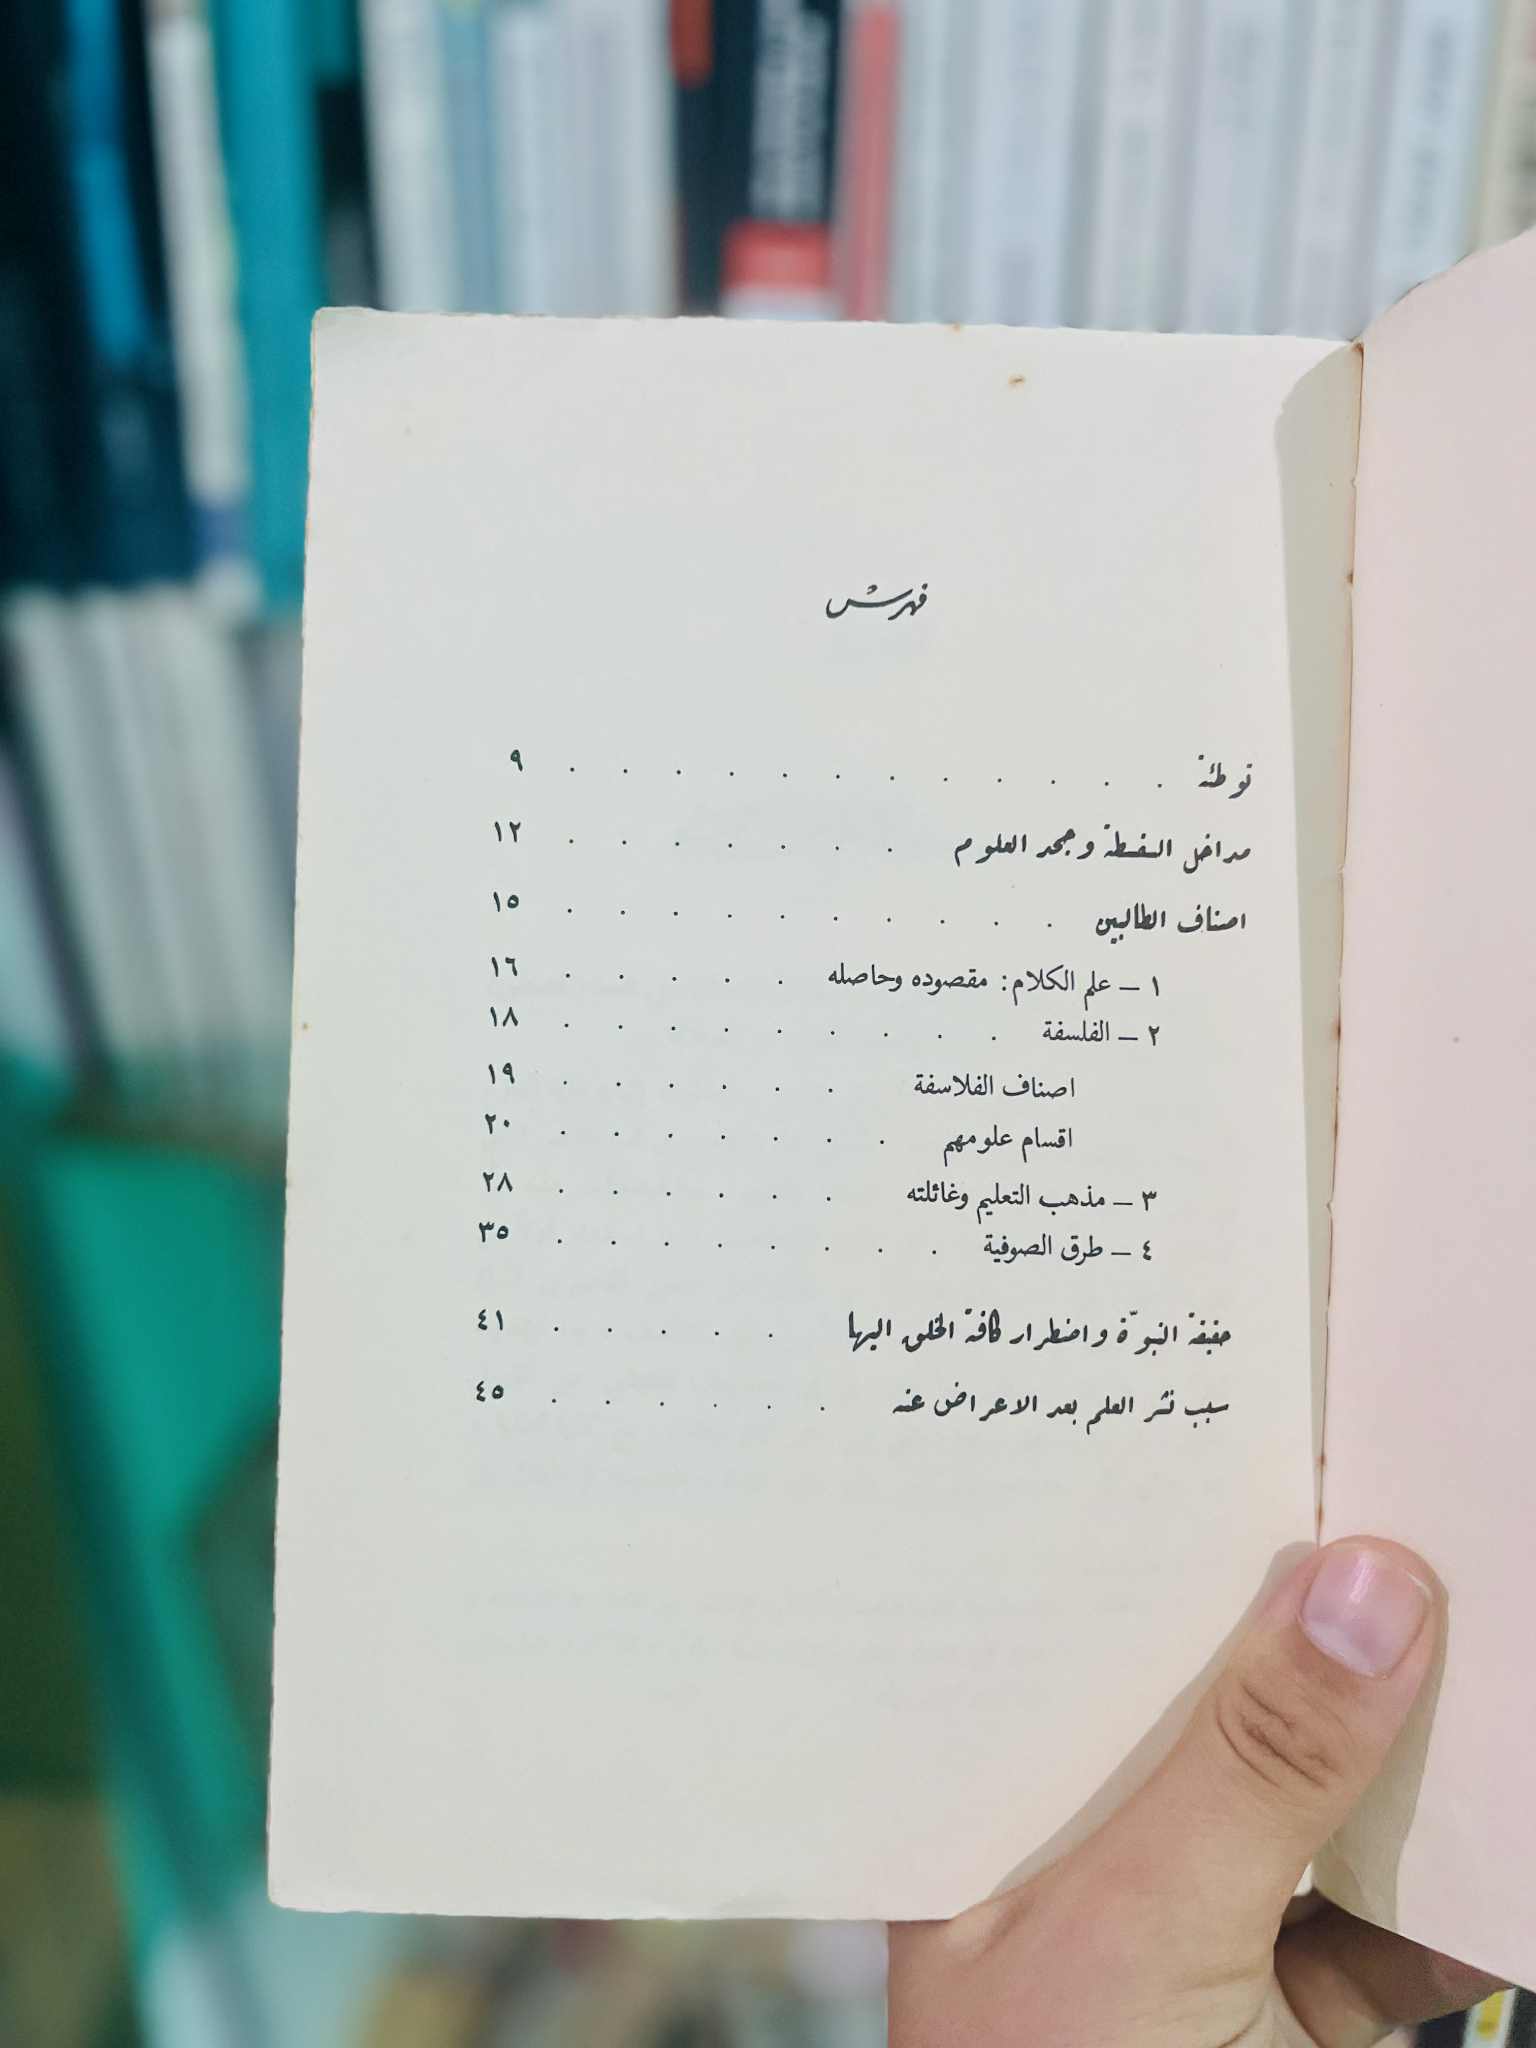 فهرس
توطئة . . . . . . . . . . . . ٩
مداخل السفسطة وجحد العلوم . . . . . . . ١٢
اصناف الطالبين . . . . . . . . . . ١٥
١ – علم الكلام: مقصوده وحاصله . . . . . ١٦
٢ – الفلسفة . . . . . . . . . ١٨
اصناف الفلاسفة . . . . . . ١٩
اقسام علومهم . . . . . . . ٢٠
٣ – مذهب التعليم وغائلته . . . . . . ٢٨
٤ – طرق الصوفية . . . . . . . . ٣٥
حقيقة النبوّة واضطرار كافة الخلق اليها . . . . . ٤١
سبب نشر العلم بعد الاعراض عنه . . . . . . ٤٥